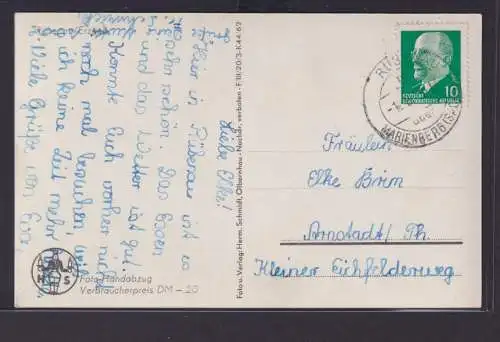 Liebe Elke!
Hier in Rübenau ist es
sehr schön. Das Essen
und das Wetter ist gut.
Konnte Euch vorher nicht
noch mal besuchen, weil
ich keine Zeit mehr
Viele Grüße von Eva,
Foto u. Verlag: Herm. Schmidt, Olbernhau - Nachdr. verboten - F III/20/3-K 44/62
Foto-Handabzug
Verbraucherpreis DM -.20
H S
DEUTSCHE
DEMOKRATISCHE REPUBLIK
10
MARIENBERG
Fräulein
Elke Brim
Arnstadt/Th.
Kleiner Eichfelderweg